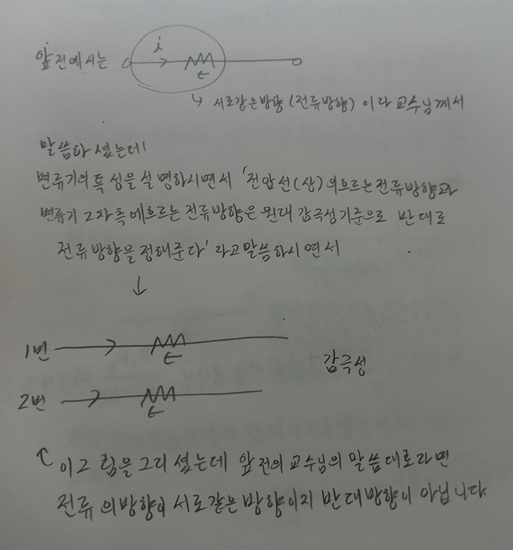 앞전에서는 i
↳ 서로같은방향(전류방향) 이라 교수님께서
말씀하셨는데
변류기의 특성을 설명하시면서 '전압선(상)의흐르는 전류방향과
변류기 2차측에흐르는 전류방향은 원래 감극성기준으로 반대로
전류방향을 정해준다' 라고말씀하시면서
↓
1번 감극성
2번
이그림을 그리셨는데 앞전의 교수님의 말씀대로라면
전류의방향이 서로같은 방향이지 반대방향이 아닙니다.